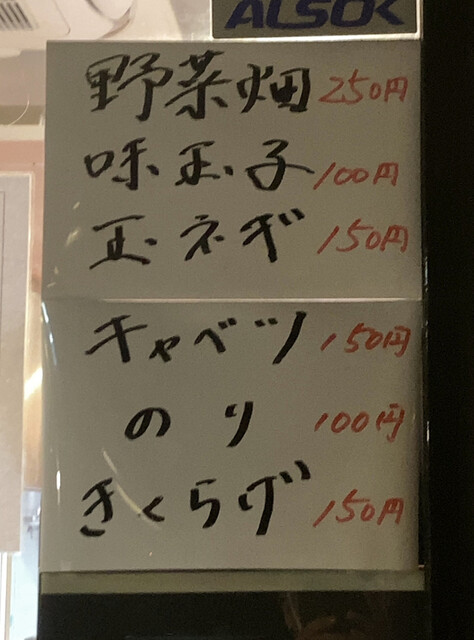 ALSOK
野菜畑 250円
味玉子 100円
玉ネギ 150円
キャベツ 150円
のり 100円
きくらげ 150円